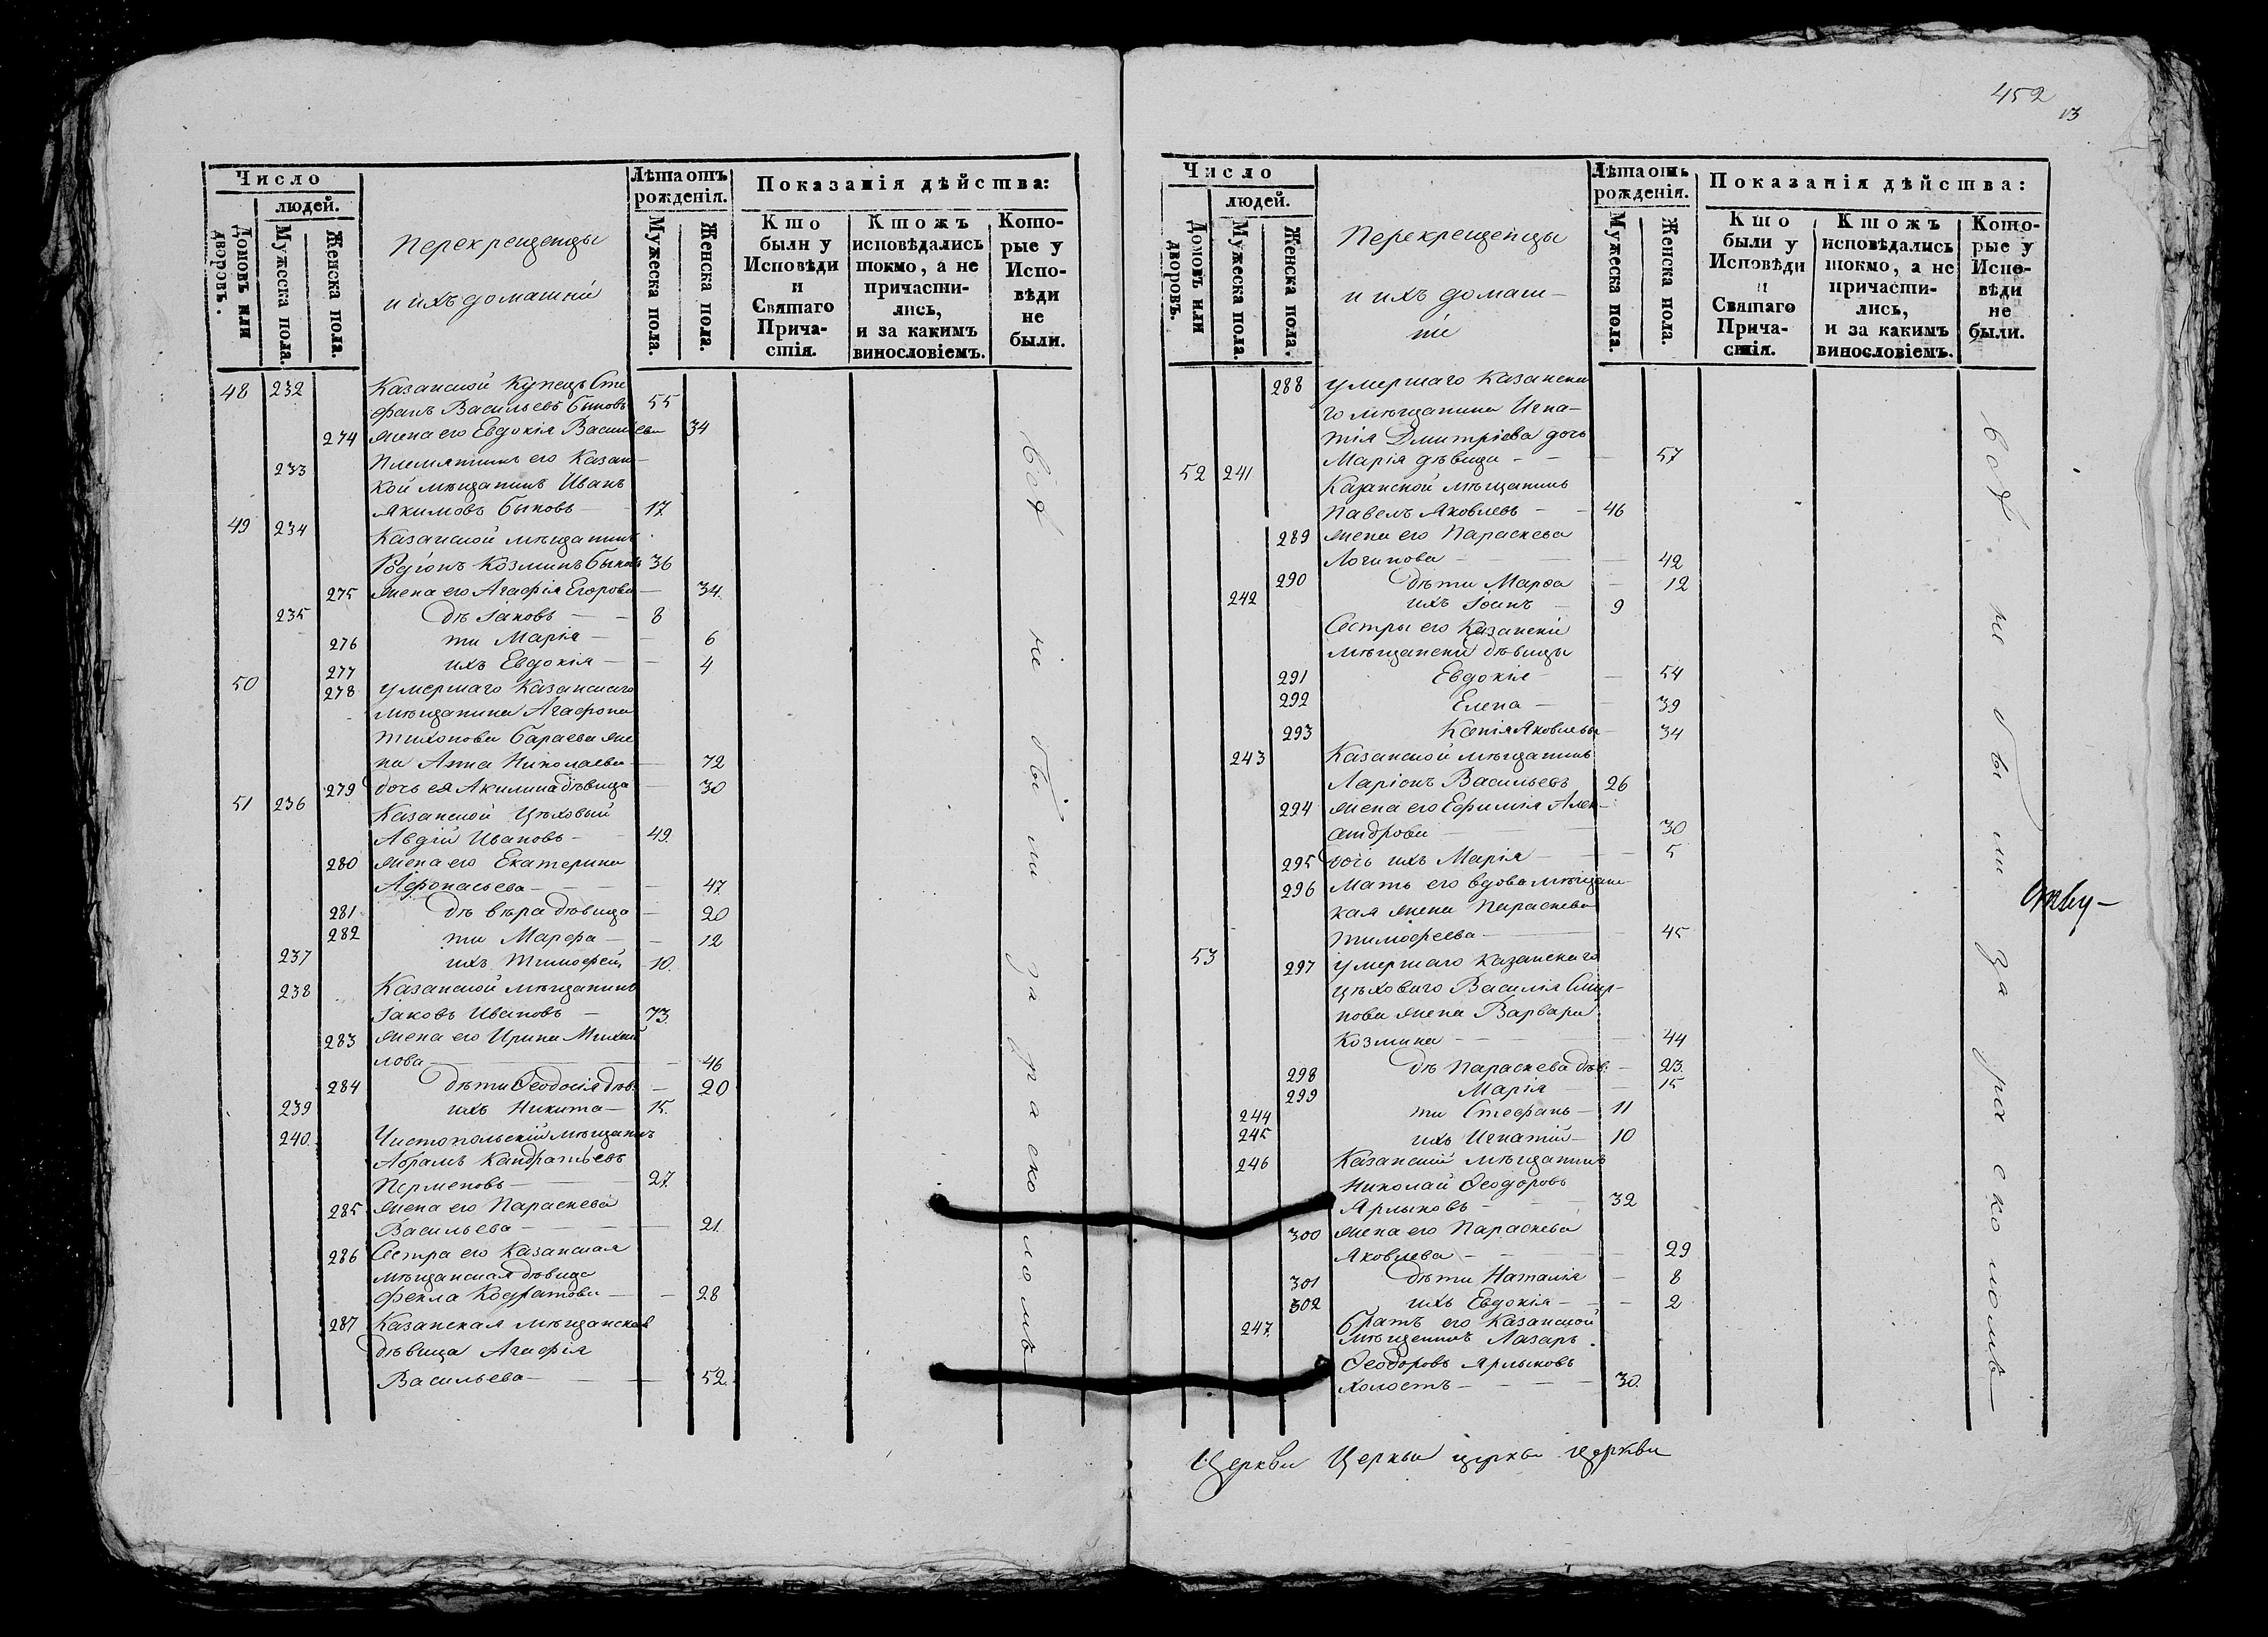 Число
людей.
Домовъ или дворовъ.
Мужеска пола.
Женска пола.
Перекрещенцы
и ихъ домашніи
Лѣта отъ рожденія.
Мужеска пола.
Женска пола.
Показанія дѣйства:
Кто были у Исповѣди и Святаго Причастія.
Ктожъ исповѣдались токмо, а не причастились, и за какимъ винословіемъ.
Которые у Исповѣди не были.
48 232 Казанской Купецъ Сте
фанъ Васильевъ Быковъ 55
274 жена его Евдокія Васильева 34
233 Племянникъ его Казан-
кой мѣщанинъ Иванъ
Якимовъ Быковъ 17
49 234 Казанской мѣщанинъ
Родіонъ Козминъ Быковъ 36
275 жена его Агафія Егорова 34
235 дѣ Іаковъ 8
276 ти Марія 6
277 ихъ Евдокія 4
50 278 умершаго Казанскаго
мѣщанина Агафона
Тихонова Бараева же
на Анна Николаева 72
279 дочь ея Акилина дѣвица 30
51 236 Казанской Цѣховый
Авдій Ивановъ 49
280 жена его Екатерина
Афонасьева 47
281 дѣ Вѣра дѣвица 20
282 ти Марфа 12
237 ихъ Тимофей 10
238 Казанской мѣщанинъ
Іаковъ Ивановъ 73
283 жена его Ирина Михай
лова 46
284 дѣти Ѳеодосія дѣв: 20
239 ихъ Никита 15
240 Чистопольскій мѣщанинъ
Абрамъ Кандратьевъ
Перменовъ 27
285 жена его Параскева
Васильева 21
286 Сестра его Казанская
мѣщанская дѣвица
Фекла Кодратова 28
287 Казанская мѣщанская
дѣвица Агафія
Васильева 52
всѣ не были за расколомъ
452
13
Число
людей.
Домовъ или дворовъ.
Мужеска пола.
Женска пола.
Перекрещенцы
и ихъ домаш-
ніи
Лѣта отъ рожденія.
Мужеска пола.
Женска пола.
Показанія дѣйства:
Кто были у Исповѣди и Святаго Причастія.
Ктожъ исповѣдались токмо, а не причастились, и за какимъ винословіемъ.
Которые у Исповѣди не были.
288 умершаго Казанска
го мѣщанина Игна-
тія Дмитріева дочь
Марія дѣвица 57
52 241 Казанской мѣщанинъ
Павелъ Яковлевъ 46
289 жена его Параскева
Логинова 42
290 дѣти Марѳа 12
242 ихъ Іоанъ 9
Сестры его Казанскіи
мѣщански дѣвицы
291 Евдокія 54
292 Елена 39
293 Ксенія Яковлевы 34
243 Казанской мѣщанинъ
Ларіонъ Васильевъ 26
294 жена его Ефимія Алек-
сандрова 30
295 дочь ихъ Марія 5
296 Мать его вдова мѣщанс-
кая жена Параскева
Тимофеева 45
53 297 умершаго Казанскаго
цѣховаго Василія Смир-
нова жена Варвара
Козмина 44
298 дѣ Параскева дѣв: 23
299 Марія 15
244 ти Стефанъ 11
245 ихъ Игнатій 10
246 Казанскій мѣщанинъ
Николай Ѳеодоровъ
Ярлыковъ 32
300 жена его Параскева
Яковлева 29
301 дѣти Наталія 8
302 ихъ Евдокія 2
247 братъ его Казанской
мѣщенинъ Лазарь
Ѳеодоровъ Ярлыковъ
холостъ 30
всѣ не были за расколомъ
Церкви Церкви церкви церкви